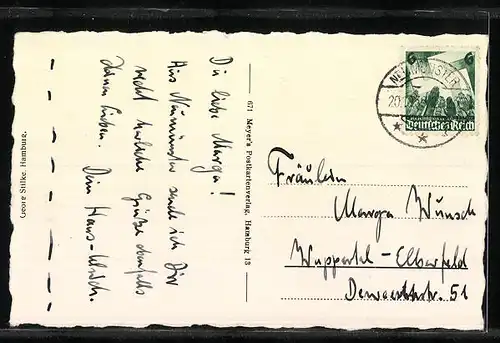 Du liebe Marga!
Aus Neumünster sende ich Dir
recht herzliche Grüße ebenfalls
Deinen Lieben. Dein Hans-Ulrich.
Georg Stilke, Hamburg.
671 Meyer's Postkartenverlag, Hamburg 13
NEUMÜNSTER
20.
6 6
Deutsches Reich
Fräulein
Marga Wunsch
Wuppertal-Elberfeld
Dewerthstr. 51